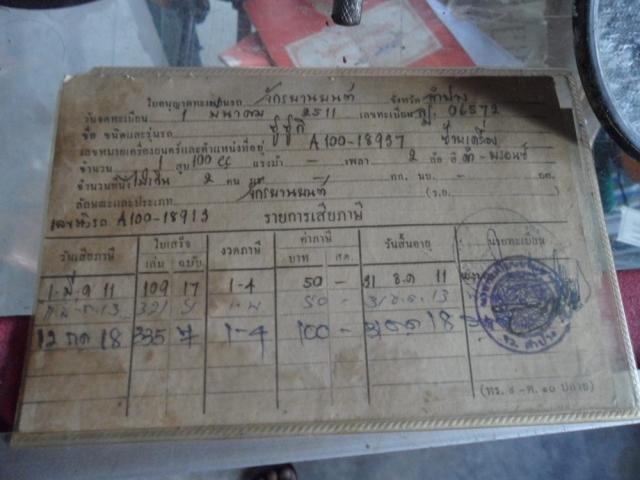 ใบอนุญาตทะเบียนรถ จักรยานยนต์ จังหวัด ลำปาง
วันจดทะเบียน 1 มีนาคม 2511 เลขทะเบียน 06572
ชื่อ ชนิดและรุ่นรถ ซูซูกิ
เลขหมายเครื่องยนต์และตำแหน่งที่อยู่ A100-18937 ข้างเครื่อง
จำนวน 1 สูบ 100 cc แรงม้า – เพลา 2 ล้อ
จำนวนที่นั่ง ไม่เกิน 2 คน – กก. นบ. – กก.
ลักษณะและประเภท จักรยานยนต์ (ร.ย. )
เลขตัวรถ A100-18913 รายการเสียภาษี
วันเสียภาษี ใบเสร็จ งวดภาษี ค่าภาษี วันสิ้นอายุ นายทะเบียน
เล่ม ฉบับ บาท สต.
1 มี.ค 11 109 17 1-4 50 – 31 ธ.ค 11
13 321 50 – 31 ธ.ค. 13
12 กค 18 335 7 1-4 100 – 31 ธค 18
จว. ลำปาง